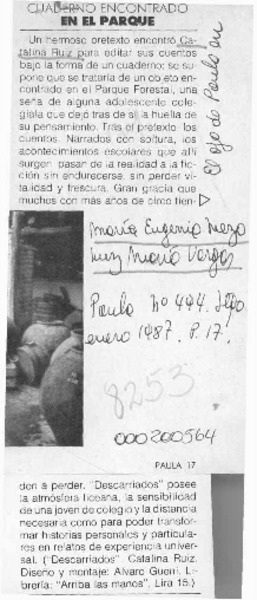 CUADERNO ENCONTRADO
EN EL PARQUE
Un hermoso pretexto encontró Ca-
talina Ruiz para editar sus cuentos
bajo la forma de un cuaderno: se su-
pone que se trataría de un objeto en-
contrado en el Parque Forestal, una
seña de alguna adolescente cole-
giala que dejó tras de sí la huella de
su pensamiento. Tras el pretexto, los
cuentos. Narrados con soltura, los
acontecimientos escolares que allí
surgen pasan de la realidad a la fic-
ción sin endurecerse, sin perder vi-
talidad y frescura. Gran gracia que
muchos con más años de circo tien-
El ojo de Paula en
María Eugenia Meza
Luz María Vargas
Paula Nº 494. Stgo
enero 1987. P. 17.
8253
000200564
PAULA 17
den a perder. "Descarriados" posee
la atmósfera liceana, la sensibilidad
de una joven de colegio y la distancia
necesaria como para poder transfor-
mar historias personales y particula-
res en relatos de experiencia univer-
sal. ("Descarriados" Catalina Ruiz,
Diseño y montaje: Alvaro Gueni. Li-
brería: "Arriba las manos", Lira 15.)